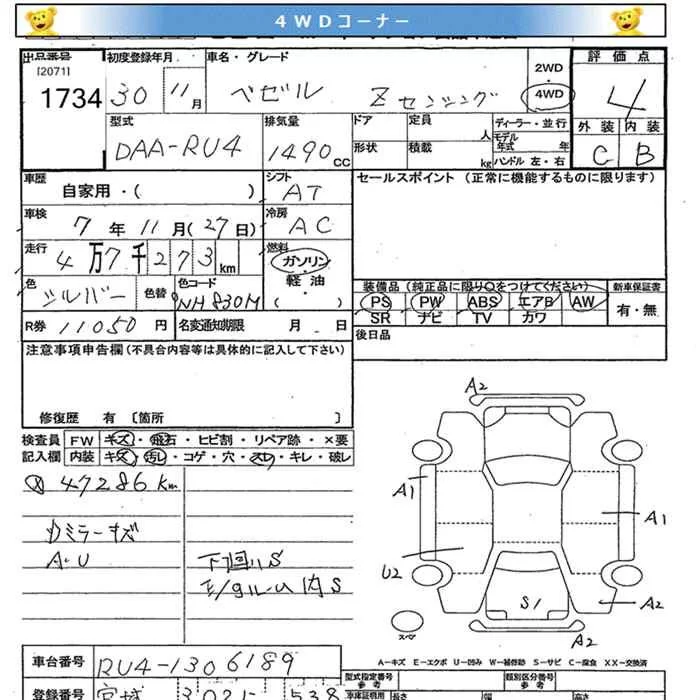 4WDコーナー
出品番号 初度登録年月 車名・グレード 2WD 評価点
[2071]
1734 30 11月 ベゼル Zセンシング 4WD 4
型式 排気量 ドア 定員 人 ディーラー・並行 外装 内装
DAA-RU4 1490CC 形状 積載 kg モデル年式 年 ハンドル 左・右 C B
車歴 シフト セールスポイント (正常に機能するものに限ります)
自家用・( ) AT
車検 冷房
7年11月(27日) AC
走行 燃料
4万7千273km ガソリン・
軽油・
色 色替 色コード ( ) 装備品(純正品に限り○をつけてください) 新車保証書
シルバー NH830M PS PW ABS エアB AW 有・無
SR ナビ TV カワ
R券 11050円 名変通知期限 月 日
後日品
注意事項申告欄(不具合内容等は具体的に記入して下さい)
修復歴 有 〔箇所 〕
検査員 FW キズ・飛石・ヒビ割・リペア跡・×要
記入欄 内装 キズ・汚れ・コゲ・穴・スレ・キレ・破レ
47286Km
ミラーキズ
A・U
下回りS
内S
A2
A1
A1
U2
S1
A2
A2
スペア
A-キズ E-エクボ U-凹み W-補修跡 S-サビ C-腐食 XX-交換済
車台番号 RU4-1306189
型式指定番号 類別区分番号
参考 参考
登録番号 宮城 302 538
車庫証明用 長さ 幅 高さ